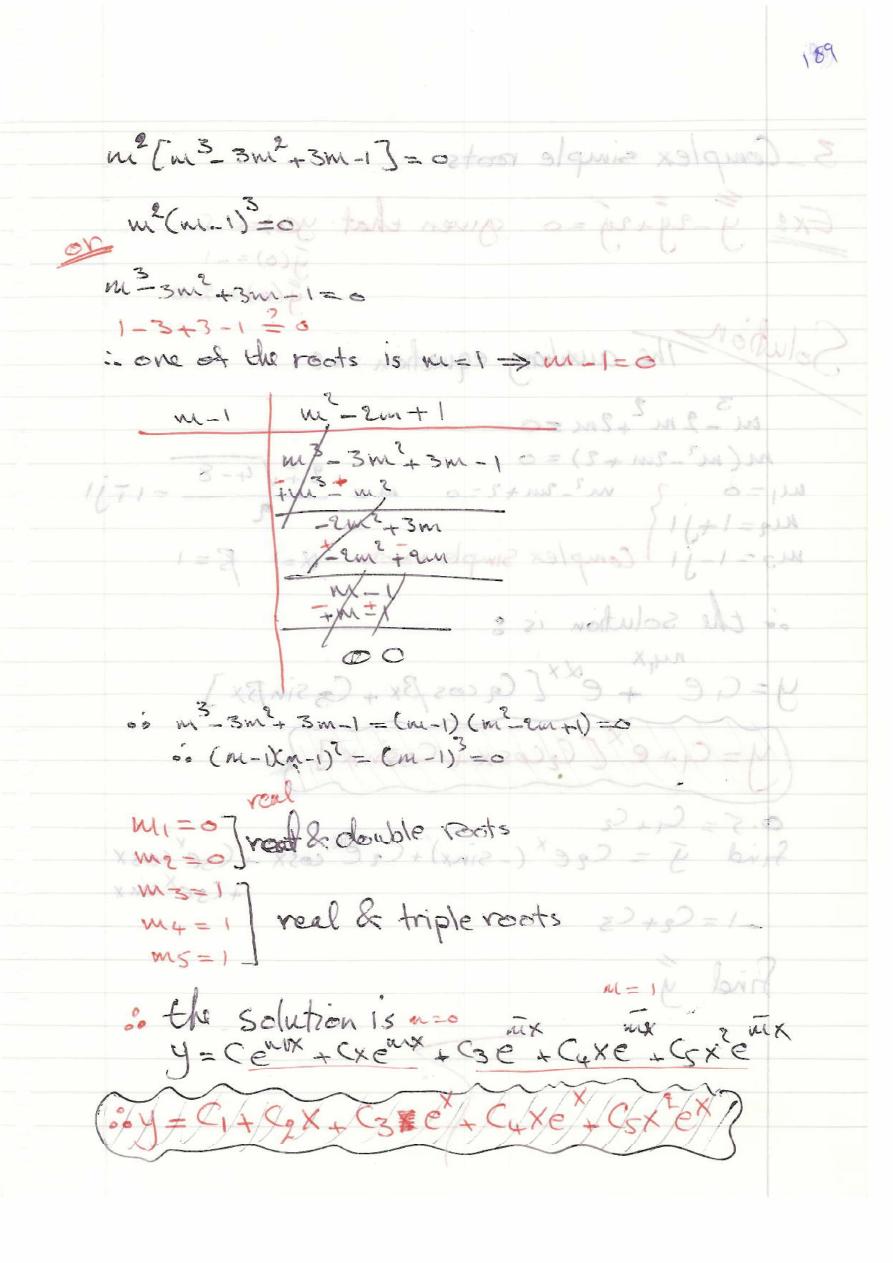 189
m²[m³ - 3m² + 3m - 1] = 0
m²(m-1)³ = 0
or
m³ - 3m² + 3m - 1 = 0
1 - 3 + 3 - 1 ?= 0
∴ one of the roots is m = 1 ⇒ m - 1 = 0
m - 1 | m² - 2m + 1
m³ - 3m² + 3m - 1
- +
+m³ - m²
-2m² + 3m
+ -
-2m² + 2m
m - 1
- +
+m - 1
0 0
∴ m³ - 3m² + 3m - 1 = (m-1)(m² - 2m + 1) = 0
∴ (m-1)(m-1)² = (m-1)³ = 0
real
m1 = 0
m2 = 0 ] & double roots
m3 = 1
m4 = 1 ] real & triple roots
m5 = 1
m = 1
∴ the solution is m = 0
y = C e^mx + C x e^mx + C3 e^m̄x + C4 x e^m̄x + C5 x² e^m̄x
∴ y = C1 + C2 x + C3 e^x + C4 x e^x + C5 x² e^x